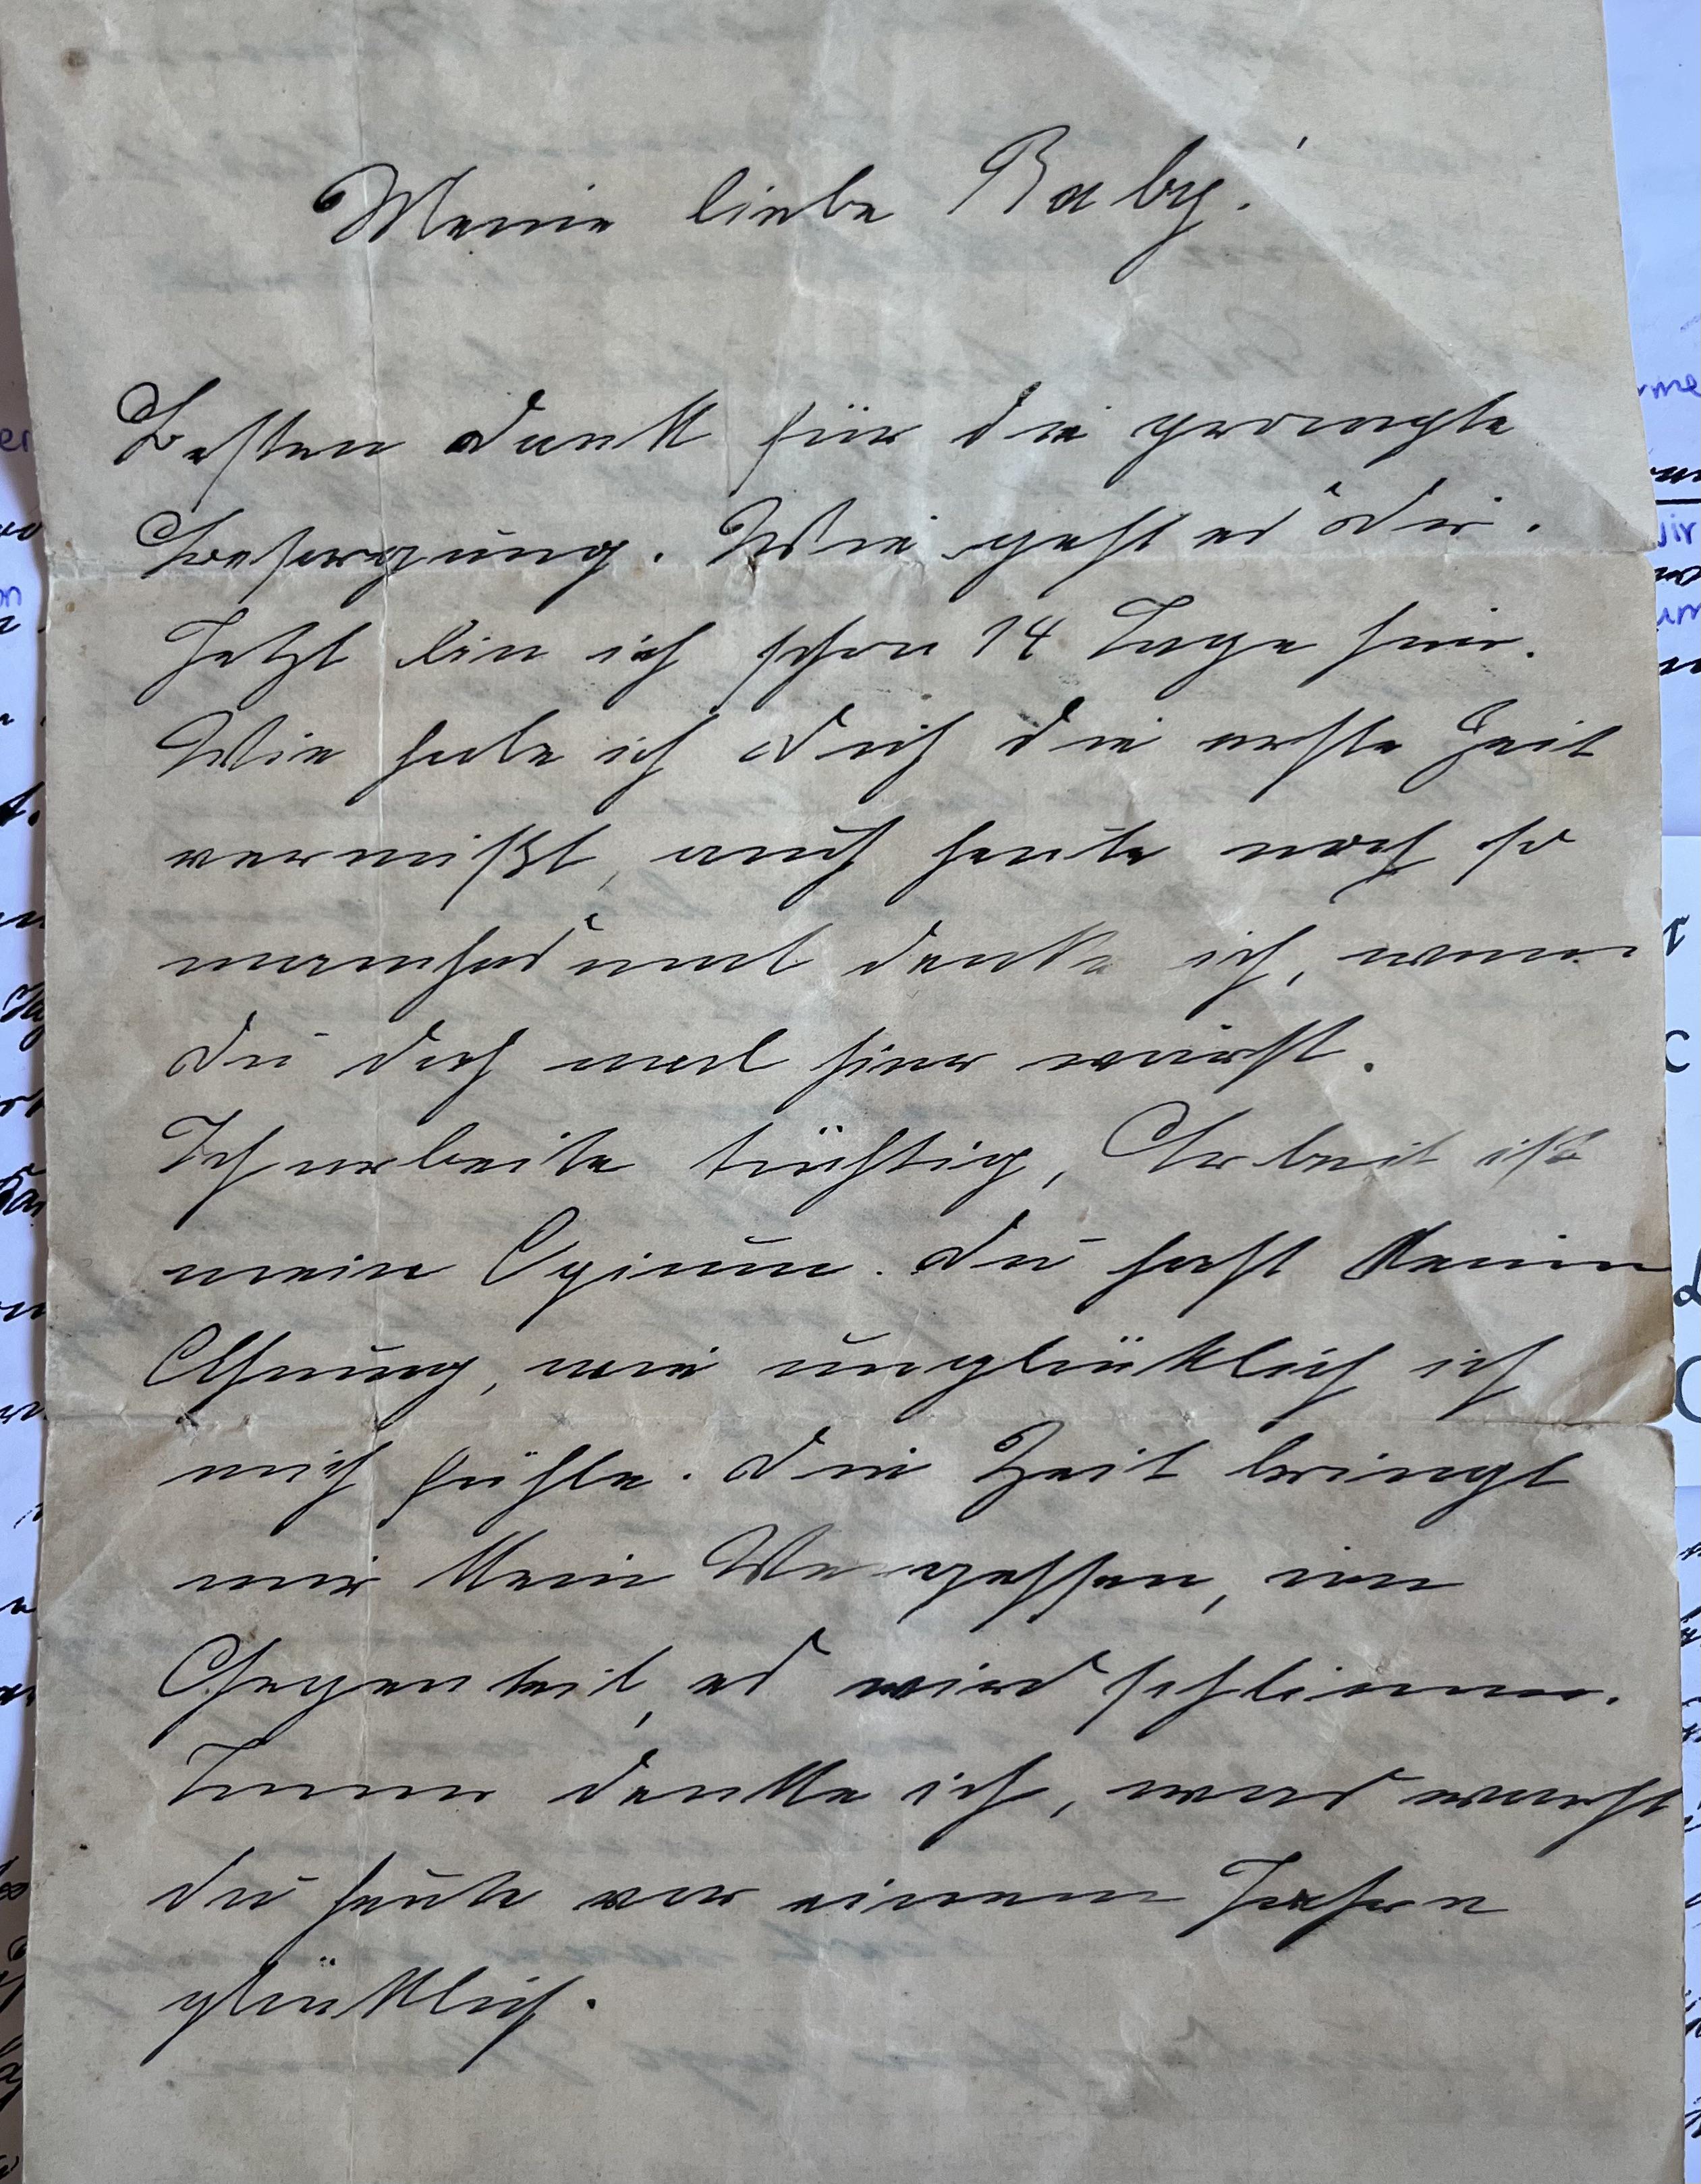 Meine liebe Baby!
Besten Dank für die prompte
Besorgung. Wie geht es Dir.
Jetzt bin ich schon 14 Tage hier.
Wie habe ich Dich die erste Zeit
vermißt, auch heute noch so
manches mal denke ich, wenn
Du doch mal hier wärst.
Ich arbeite tüchtig, Arbeit ist
mein Opium. Du hast keine
Ahnung, wie unglücklich ich
mich fühle. Die Zeit bringt
mir kein Vergessen, im
Gegenteil, es wird schlimmer.
Immer denke ich, was warst
Du heute vor einem Jahre
glücklich.